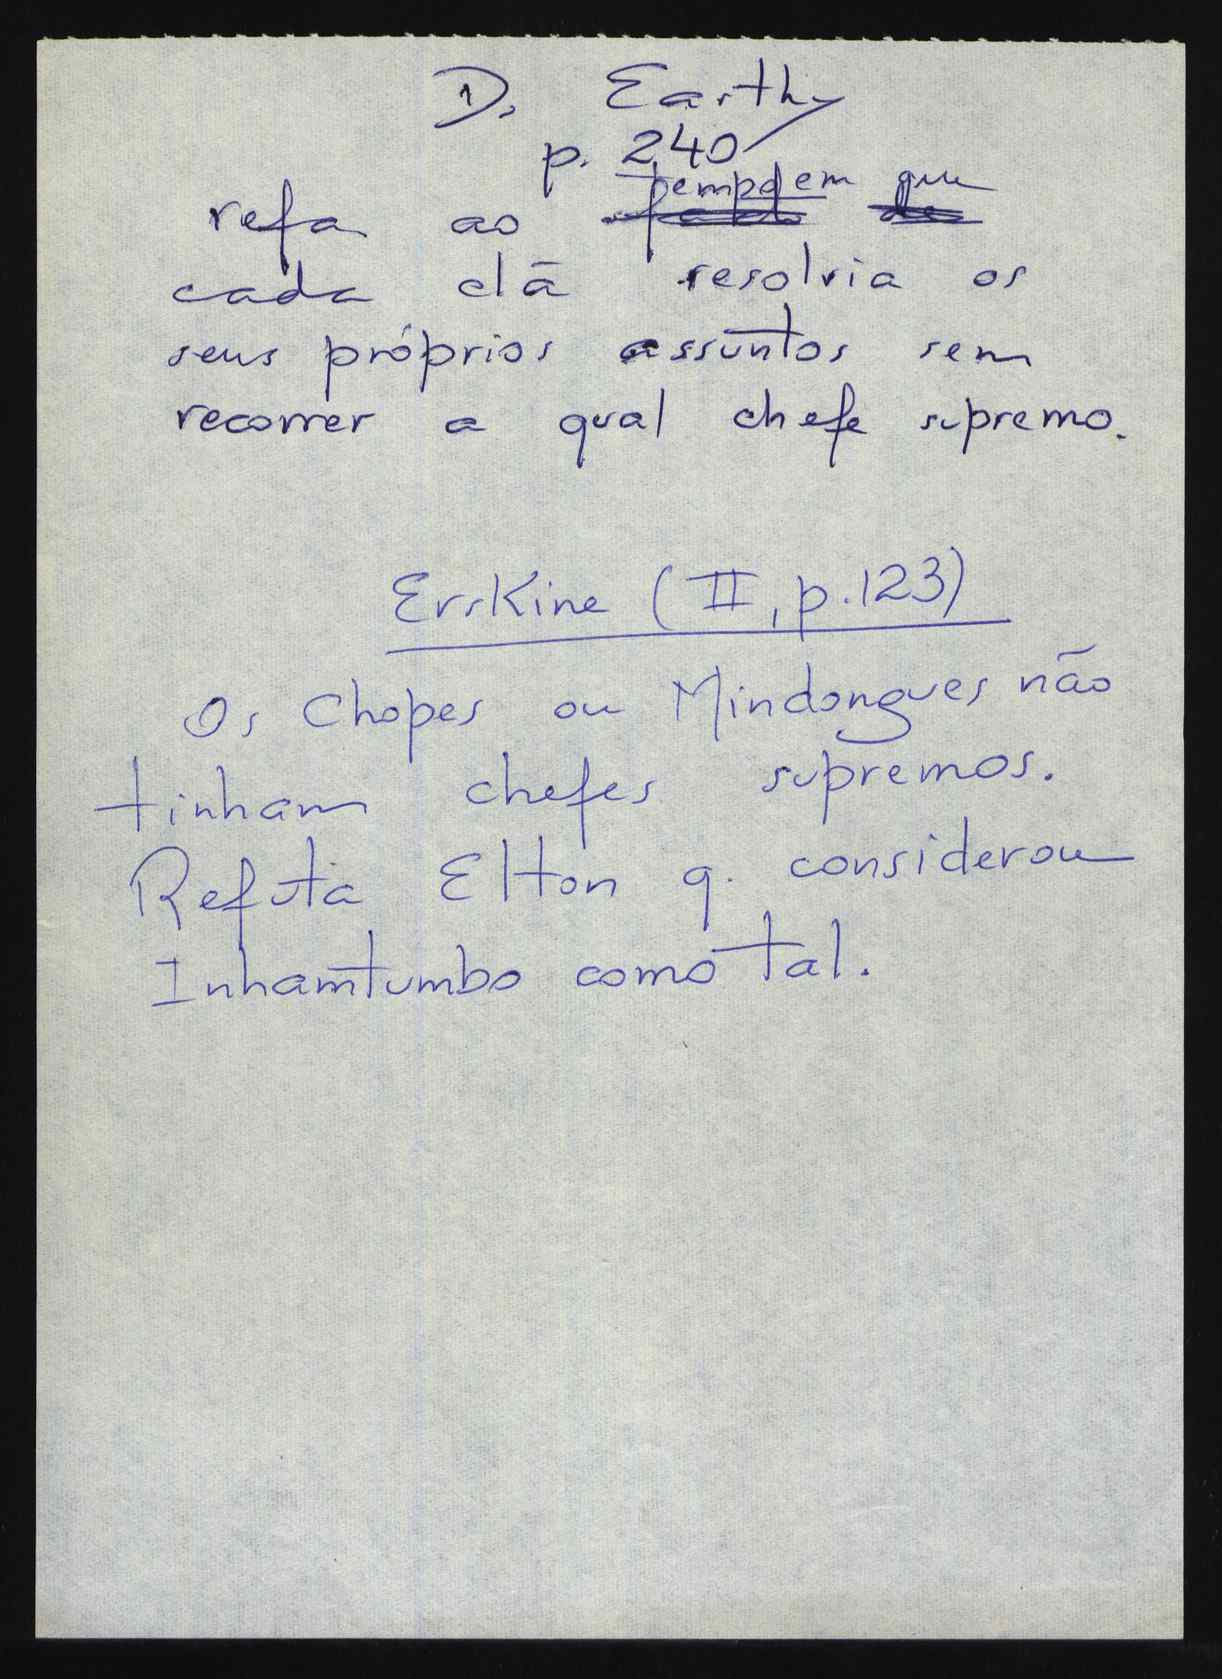 D. Earthy
p. 240
tempo em que
refa ao
cada clã resolvia os
seus próprios assuntos sem
recorrer a qual chefe supremo.
Erskine (II, p. 123)
Os Chopes ou Mindongues não
tinham chefes supremos.
Refuta Elton q. considerou
Inhamtumbo como tal.